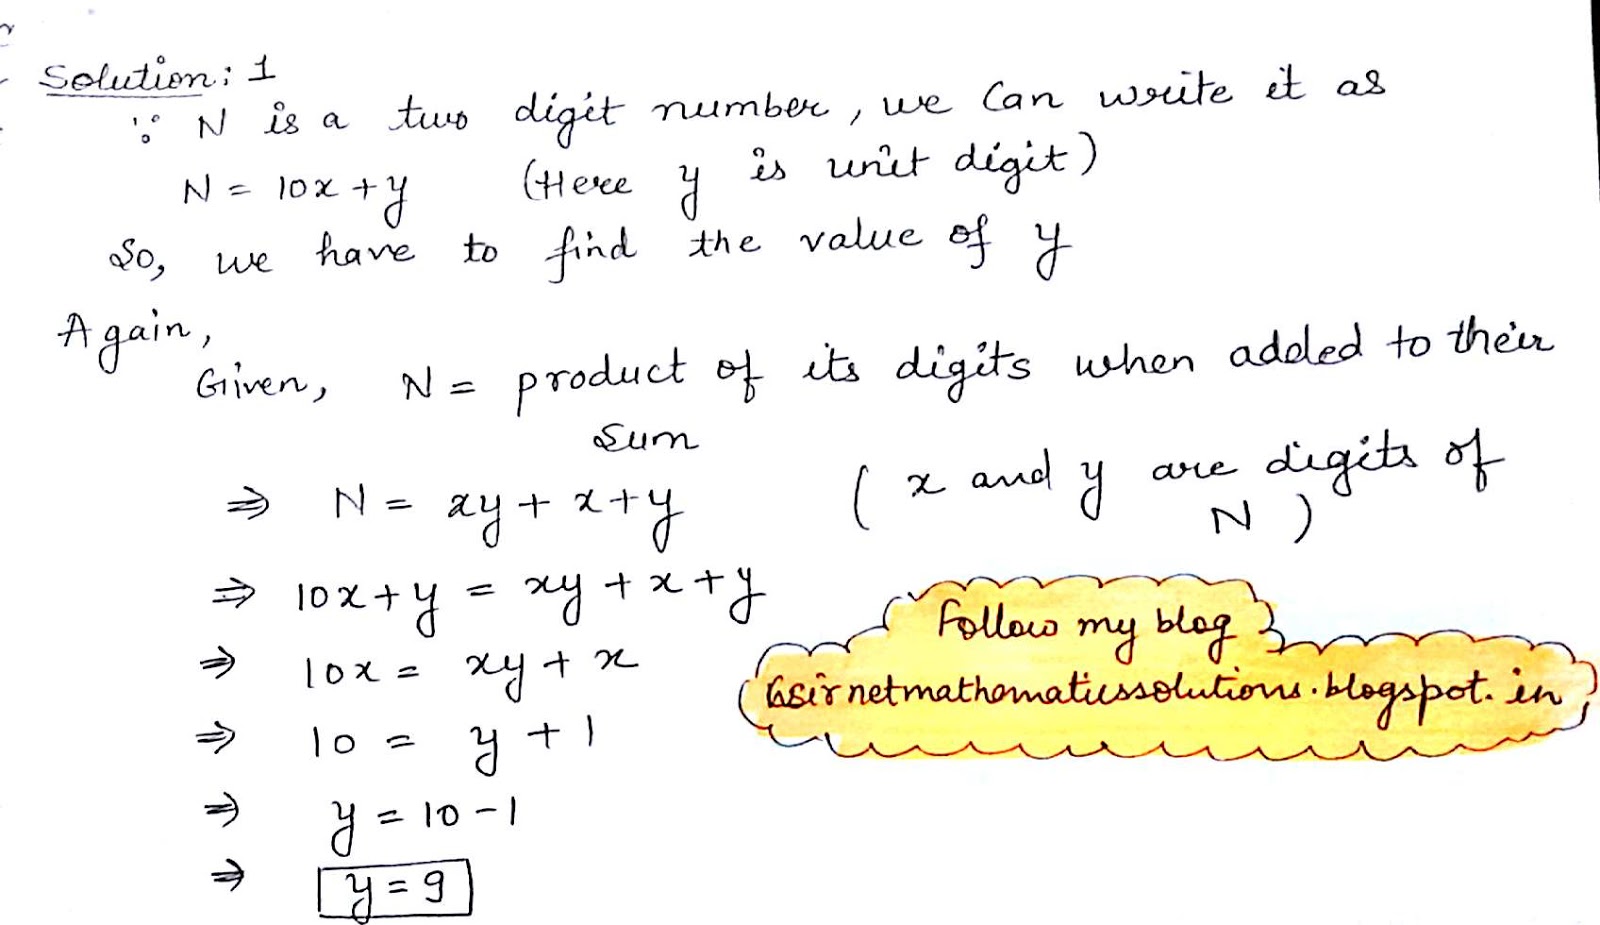 Solution: 1
∵ N is a two digit number, we can write it as
N = 10x + y (Here y is unit digit)
So, we have to find the value of y
Again,
Given, N = product of its digits when added to their
sum
⇒ N = xy + x + y (x and y are digits of
N)
⇒ 10x + y = xy + x + y
⇒ 10x = xy + x
⇒ 10 = y + 1
⇒ y = 10 - 1
⇒ y = 9
Follow my blog
csirnetmathematicssolutions.blogspot.in